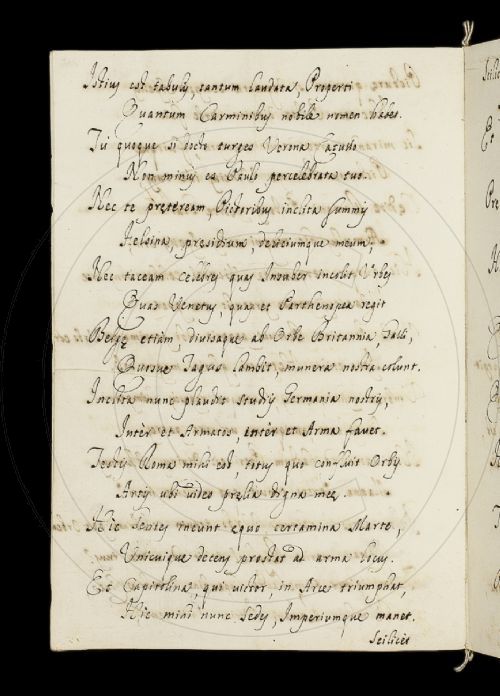 Istius est tabulis, tantum laudata, Properti
Quantum Carminibus nobile nomen habes.
Tu quoque si docto turges Verona Catullo
Non minus es Paulo percelebrata tuo.
Nec te pręteream, Pictoribus inclita summis
Felsina, pręsidium, deliciumque meum;
Nec taceam celebres quas Insuber incolit Urbes
Quas Venetus, quas et Parthenopea regit
Belgę etiam, divisaque ab Orbe Britannia, Galli,
Quosve Tagus lambit, munera nostra colunt.
Inclita nunc plaudit studijs Germania nostris,
Inter et Armatos, inter et Arma favet.
Testis Roma mihi est, totus quo confluit Orbis
Artis ubi video prelia digna meę.
Hic Gentes ineunt equo certamina Marte,
Unicuique decens prostat ad arma locus.
Et Capitolina qui victor, in Arce triumphat,
Hic mihi nunc Sedes, Imperiumque manet.
Scilicet